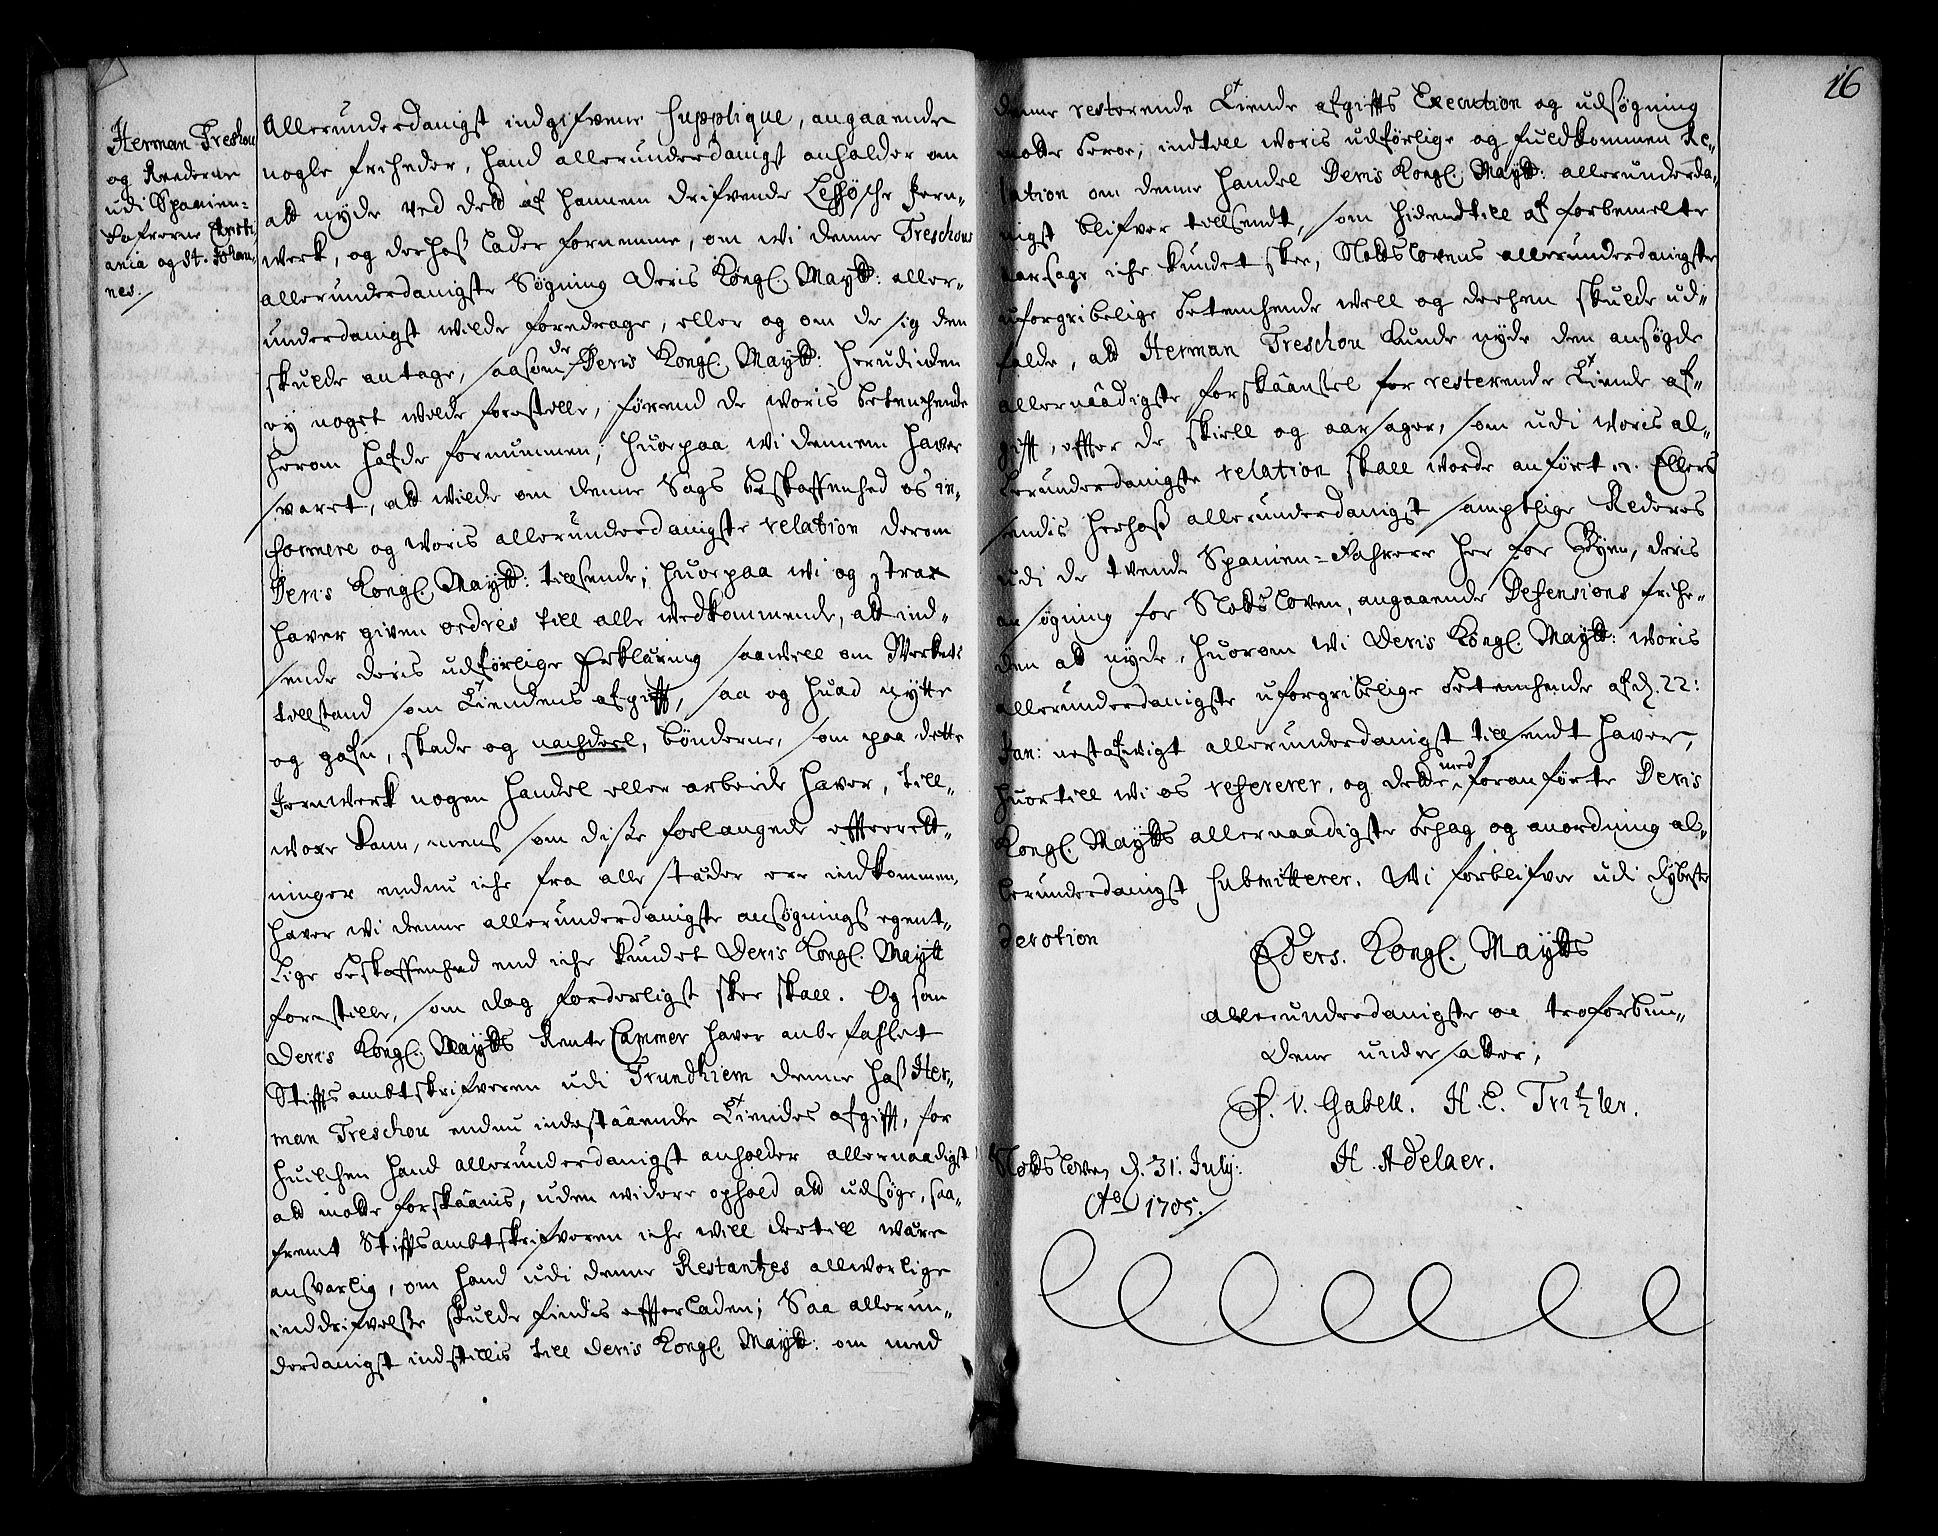 Herman Treschou
og Reederne
udi Spanien-
Fahrerne Christi
ania og St. Johan-
nes.
Allerunderdanigst indgifvene Supplique, angaaende
nogle friheder, hand allerunderdanigst anholder om
att nyde ved dett af hannem drifvende Lessøsche Jern-
werk, og derhos lader fornemme, om wi denne Treschous
allerunderdanigste Søgning Deris Kongl. Maytt: aller-
underdanigst wilde foredrage, eller og om de sig den
skulde antage, saasom de Deris Kongl. Maytt: herudinden
ey noget wilde forestille, førend de woris betenchende
herom hafde fornummen, huorpaa wi dennem haver
svaret, att wilde om denne Sags beskaffenhed os in-
formere og woris allerunderdanigste relation derom
Deris Kongl. Maytt: tillsende; huorpaa wi og strax
haver given ordres till alle wedkommende, att ind-
sende deris udførlige Erklæring saawell om Werkets
tillstand som Tiendens afgifft, saa og huad nytte
og gafn, skade og nachdeel, bønderne, som paa dette
Jernwerk nogen handel eller arbeide haver, till-
woxe kand, mens som diße forlangede effterrett-
ninger endnu iche fra alle stæder ere indkommen,
haver wi denne allerunderdanigste ansøgnings egent-
lige beskaffenhed end iche kundet Deris Kongl. Maytt
forestille, som dog forderligst skee skall. Og som
Deris Kongl. Maytts Rente Cammer haver anbefahlet
Stifftsambtskrifveren udi Trundhiem denne hos Her-
man Treschou endnu indestaaende Tiendes afgifft, for
huilchen hand allerunderdanigst anholder allernaadigst
att motte forskaanis, uden widere ophold att udsøge, saa-
fremt Stifftsambtskrifveren iche will dertill være
ansvarlig, om hand udi denne Restantzes allworlige
inddrifvelse skulde findis efferladen; Saa allerun-
derdanigst indstillis till Deris Kongl. Maytt: om med
16
denne resterende Tiende afgiffts Execution og udsøgning
motte beroe, indtill woris udførlige og fuldkommen Re-
lation om denne handel Deris Kongl. Maytt: allerunderda-
nigst blifver tillsendt, som hidendtill af forbemelte
aarsage iche kundet skee, Slottslovens allerunderdanigste
uforgribelige betenchende well og derhen skulde ud-
falde, att Herman Treschou kunde nyde den ansøgde
allernaadigste forskaansel for resterende Tiende af-
gifft, effter de skiell og aarsager, som udi woris al-
lerunderdanigste relation skall worde anført. Ellers
sendis herhos allerunderdanigst samptlige Reders
udi de tvende Spanien-Fahrere her for Byen, deris
ansøgning for Slottsloven, angaaende Defensions frihe-
den att nyde, huorom wi Deris Kongl. Maytt: woris
allerunderdanigste uforgribelige betenchende af d. 22:
Jan: nestafvigt allerunderdanigst tillsendt haver,
huortill wi os refererer, og dette med foranførte Deris
Kongl. Maytts allernaadigste behag og anordning al-
lerunderdanigst submitterer. Wi forblifver udi dybeste
devotion
Eders. Kongl. Maytts
allerunderdanigste oc troforbun-
dene undersatter,
F. V. Gabell. H. C. Tritzler.
H. Adelaer.
Slottsloven d. 31. July:
Ao 1705.